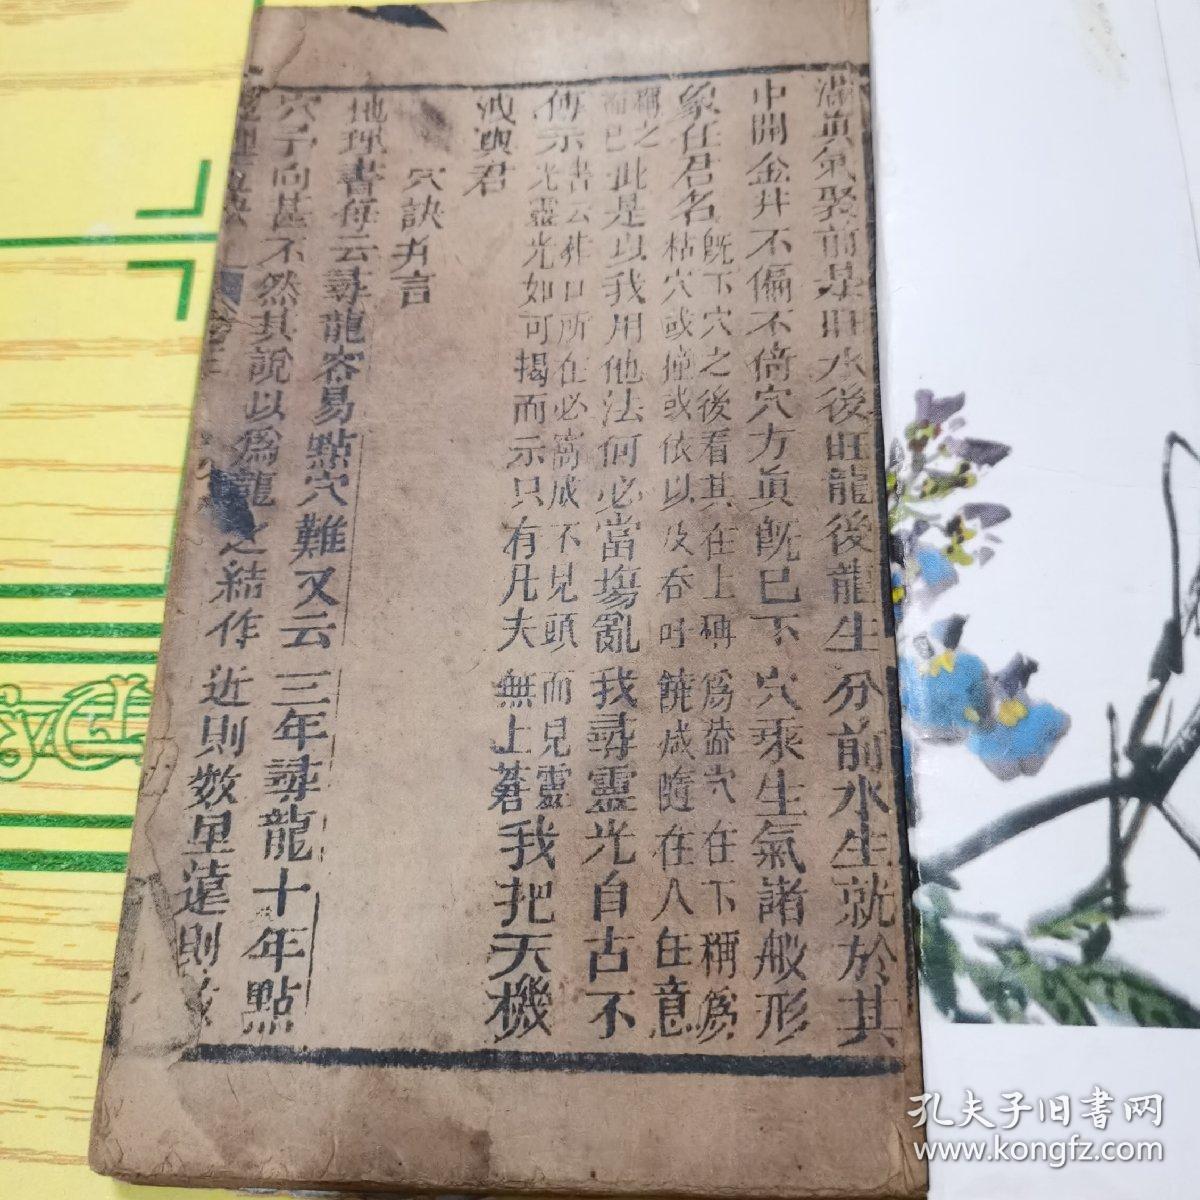 滿眞氣聚前是旺水後旺龍後龍生分前水生就於其
中開金井不偏不倚穴方眞旣已下穴乘生氣諸般形
象任君名
旣下穴之後看其在上稱爲蓋穴在下稱爲
枯穴或撞或依以及吞吐饒减隨在人任意
稱之
而已
此是以我用他法何必當塲亂我尋靈光自古不
傳示
書云在必不見頭而見靈
光靈光如可揭而示只有凡夫無上蒼
我把天機
洩與君
穴訣弁言
地理書每云尋龍容易點穴難又云三年尋龍十年點
穴予向甚不然其說以爲龍之結作近則数里遠則
孔夫子旧书网
www.kongfz.com